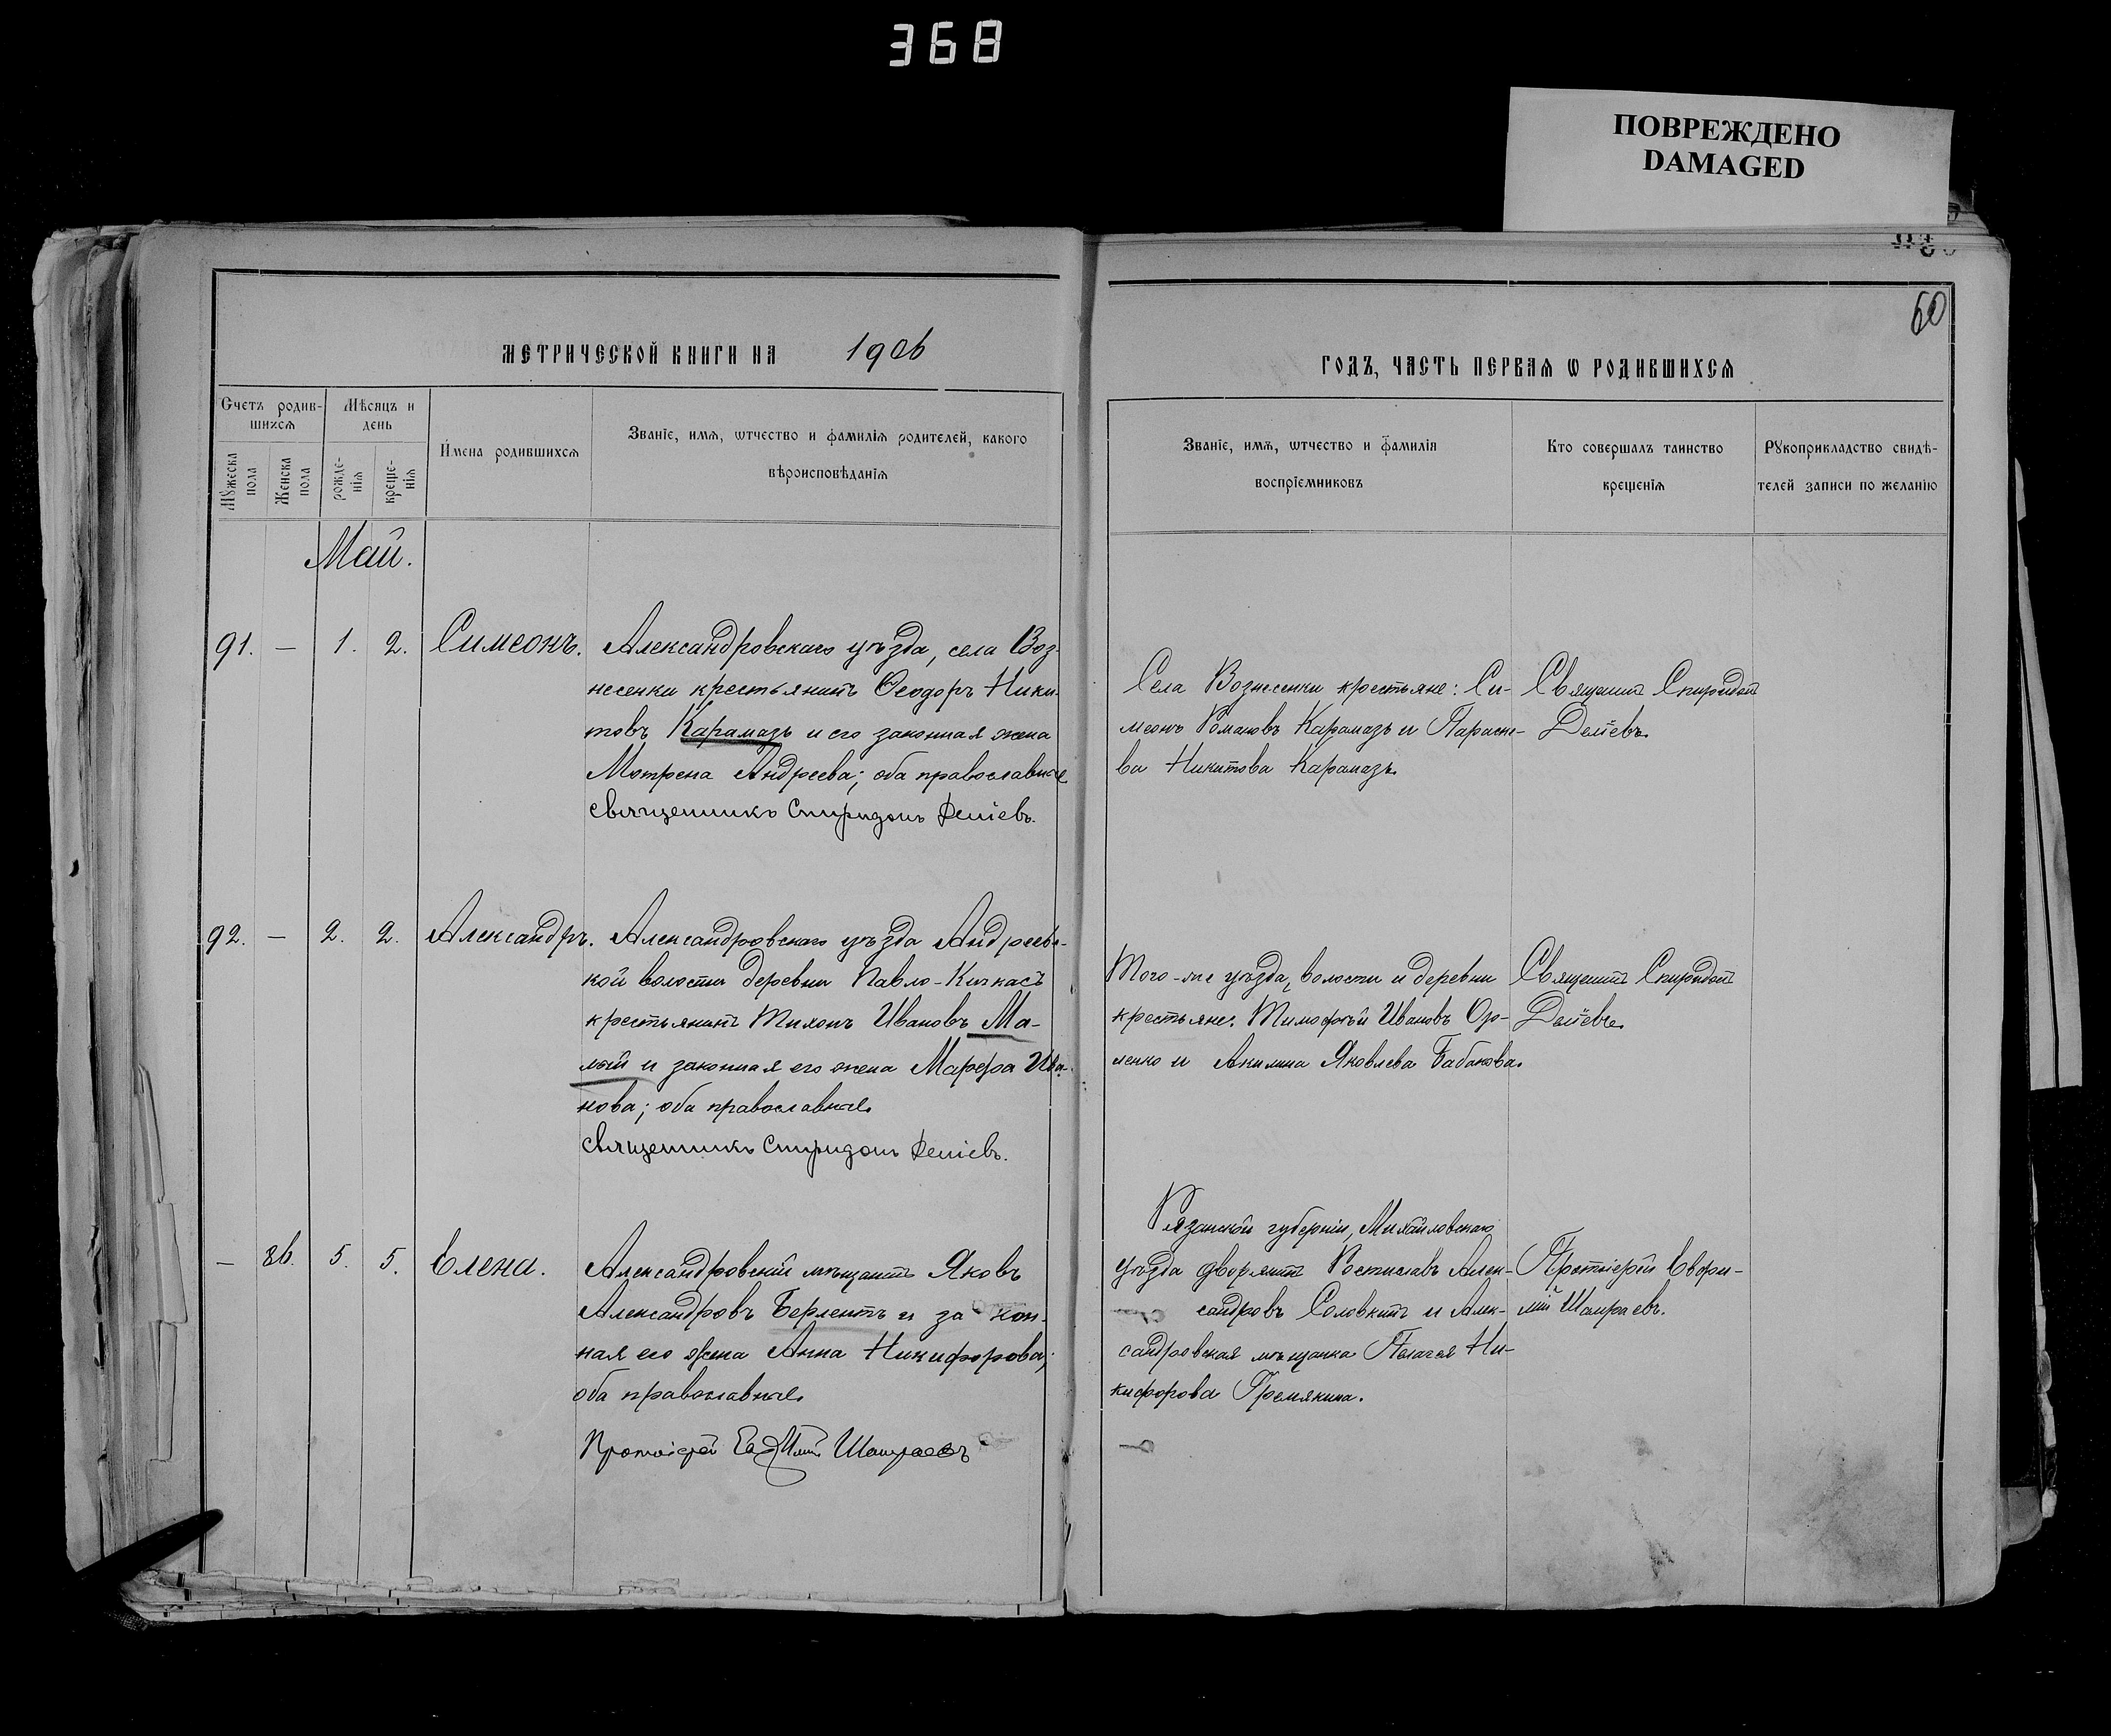 368
ПОВРЕЖДЕНО
DAMAGED
60
МЕТРИЧЕСКОЙ КНИГИ НА 1906
ГОДЪ, ЧАСТЬ ПЕРВАѦ Ѡ РОДИВШИХСѦ
Счетъ родив-
шихсѧ
Мѣсяцъ и
день
Мꙋжеска
пола
Женска
пола
рожде-
нїѧ
креще-
нїѧ
Имена родившихсѧ
Званїе, имѧ, ѡтчество и фамилїѧ родителей, какого
вѣроисповѣданїѧ
Званїе, имѧ, ѡтчество и фамилїѧ
воспрїемниковъ
Кто совершалъ таинство
крещенїѧ
Рꙋкоприкладство свидѣ-
телей записи по желанїю
Май.
91. — 1. 2. Симеонъ. Александровскаго уѣзда, села Воз-
несенки крестьянинъ Ѳеодоръ Ники-
товъ Карамазъ и его законная жена
Мотрена Андреева; оба православные
Священникъ Спиридонъ Деліевъ.
Села Вознесенки крестьяне: Си-
меонъ Романовъ Карамазъ и Параске-
ва Никитова Карамазъ.
Священникъ Спиридонъ
Деліевъ.
92. — 2. 2. Александръ. Александровскаго уѣзда Андреевс-
кой волости деревни Павло-Кичкасъ
крестьянинъ Тихонъ Ивановъ Ма-
лый и законная его жена Марфа Ива-
нова; оба православные.
Священникъ Спиридонъ Деліевъ.
Того-же уѣзда, волости и деревни
крестьяне: Тимофѣй Ивановъ Ор-
ленко и Акилина Яковлева Бабакова.
Священникъ Спиридонъ
Деліевъ.
— 86. 5. 5. Елена. Александровскій мѣщанинъ Яковъ
Александровъ Берлентъ и закон-
ная его жена Анна Никифорова;
оба православные.
Протоіерей Евфимій Шамраевъ
Рязанской губерніи, Михайловскаго
уѣзда дворянинъ Ростиславъ Алек-
сандровъ Соловкинъ и Алек-
сандровская мѣщанка Пелагея Ни-
кифорова Премякина.
Протоіерей Евфи-
мій Шамраевъ.